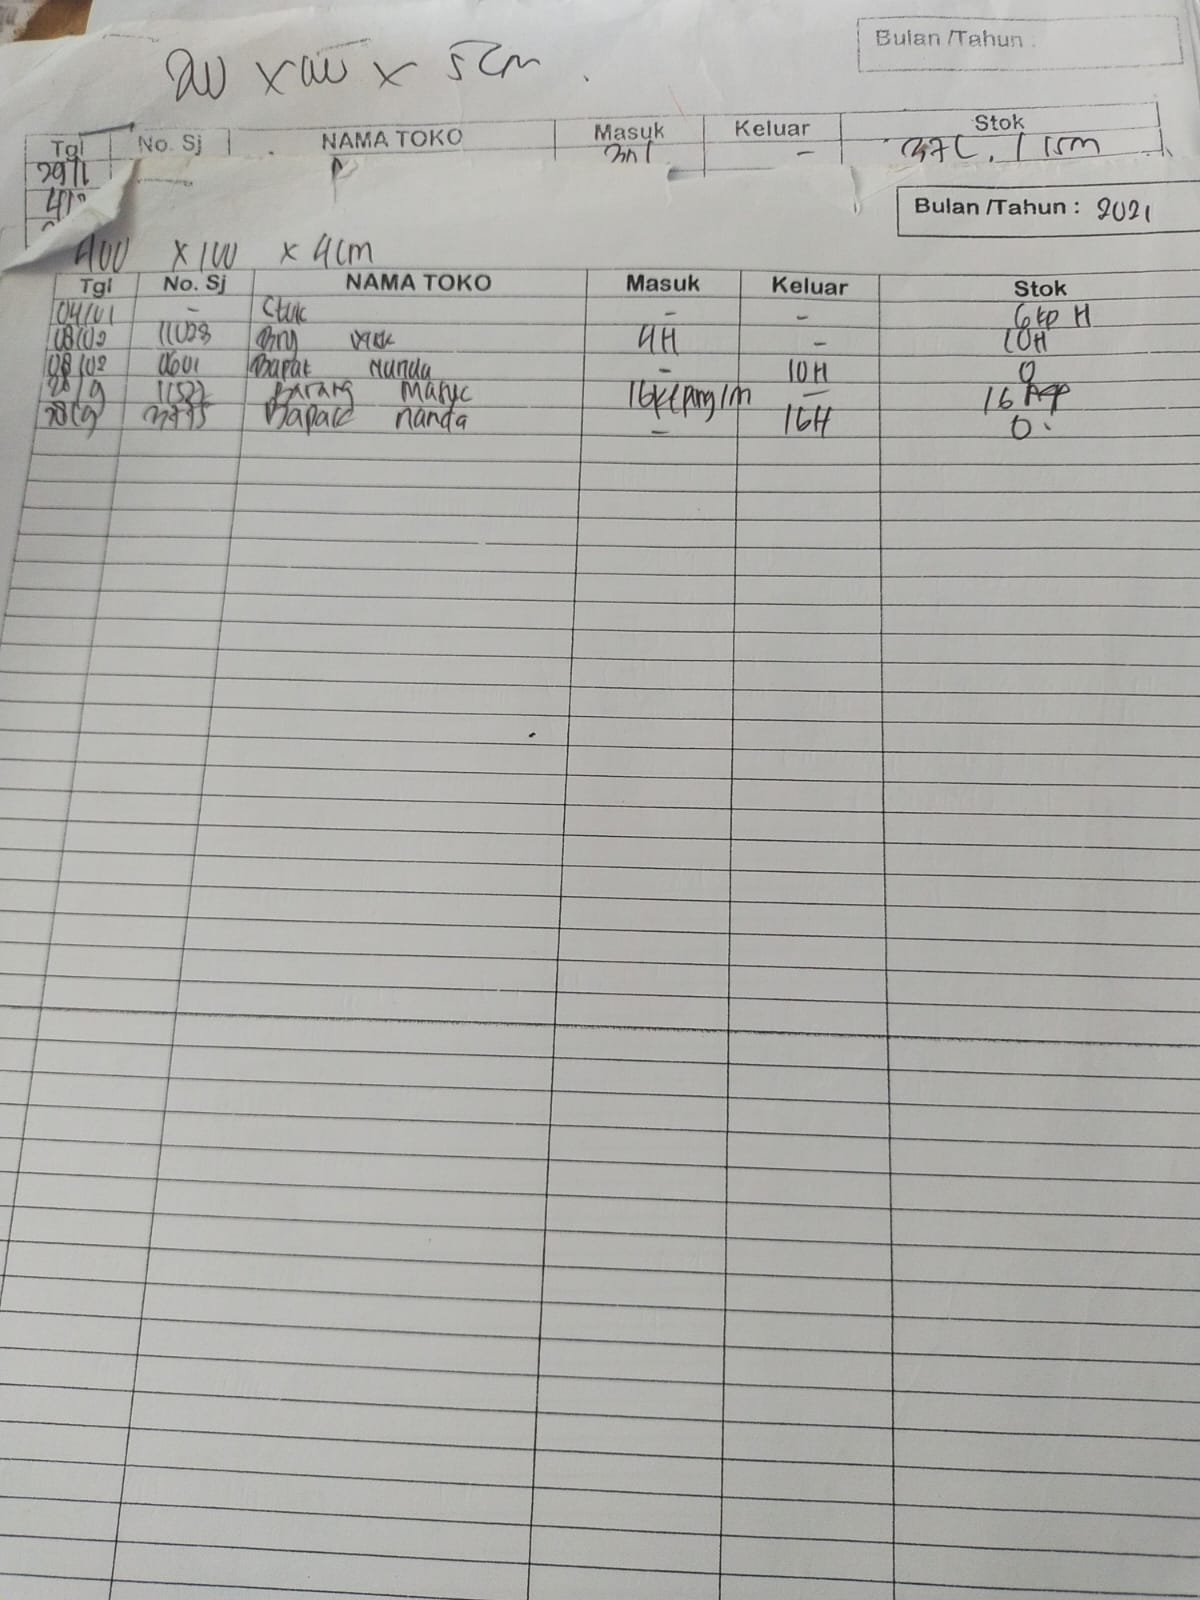 Bulan /Tahun :
x x 5cm
Tgl No. Sj NAMA TOKO Masuk Keluar Stok
29/1 - 15m
Bulan /Tahun : 2021
400 x 100 x 4cm
Tgl No. Sj NAMA TOKO Masuk Keluar Stok
04/01 - - - 6 H
08/02 11028 4H - 10H
08/02 0601 Bapak Nanda - 10H 0
28/9 Barang Masuk 16 - 16
28/9 3775 Bapak nanda - 16H 0.